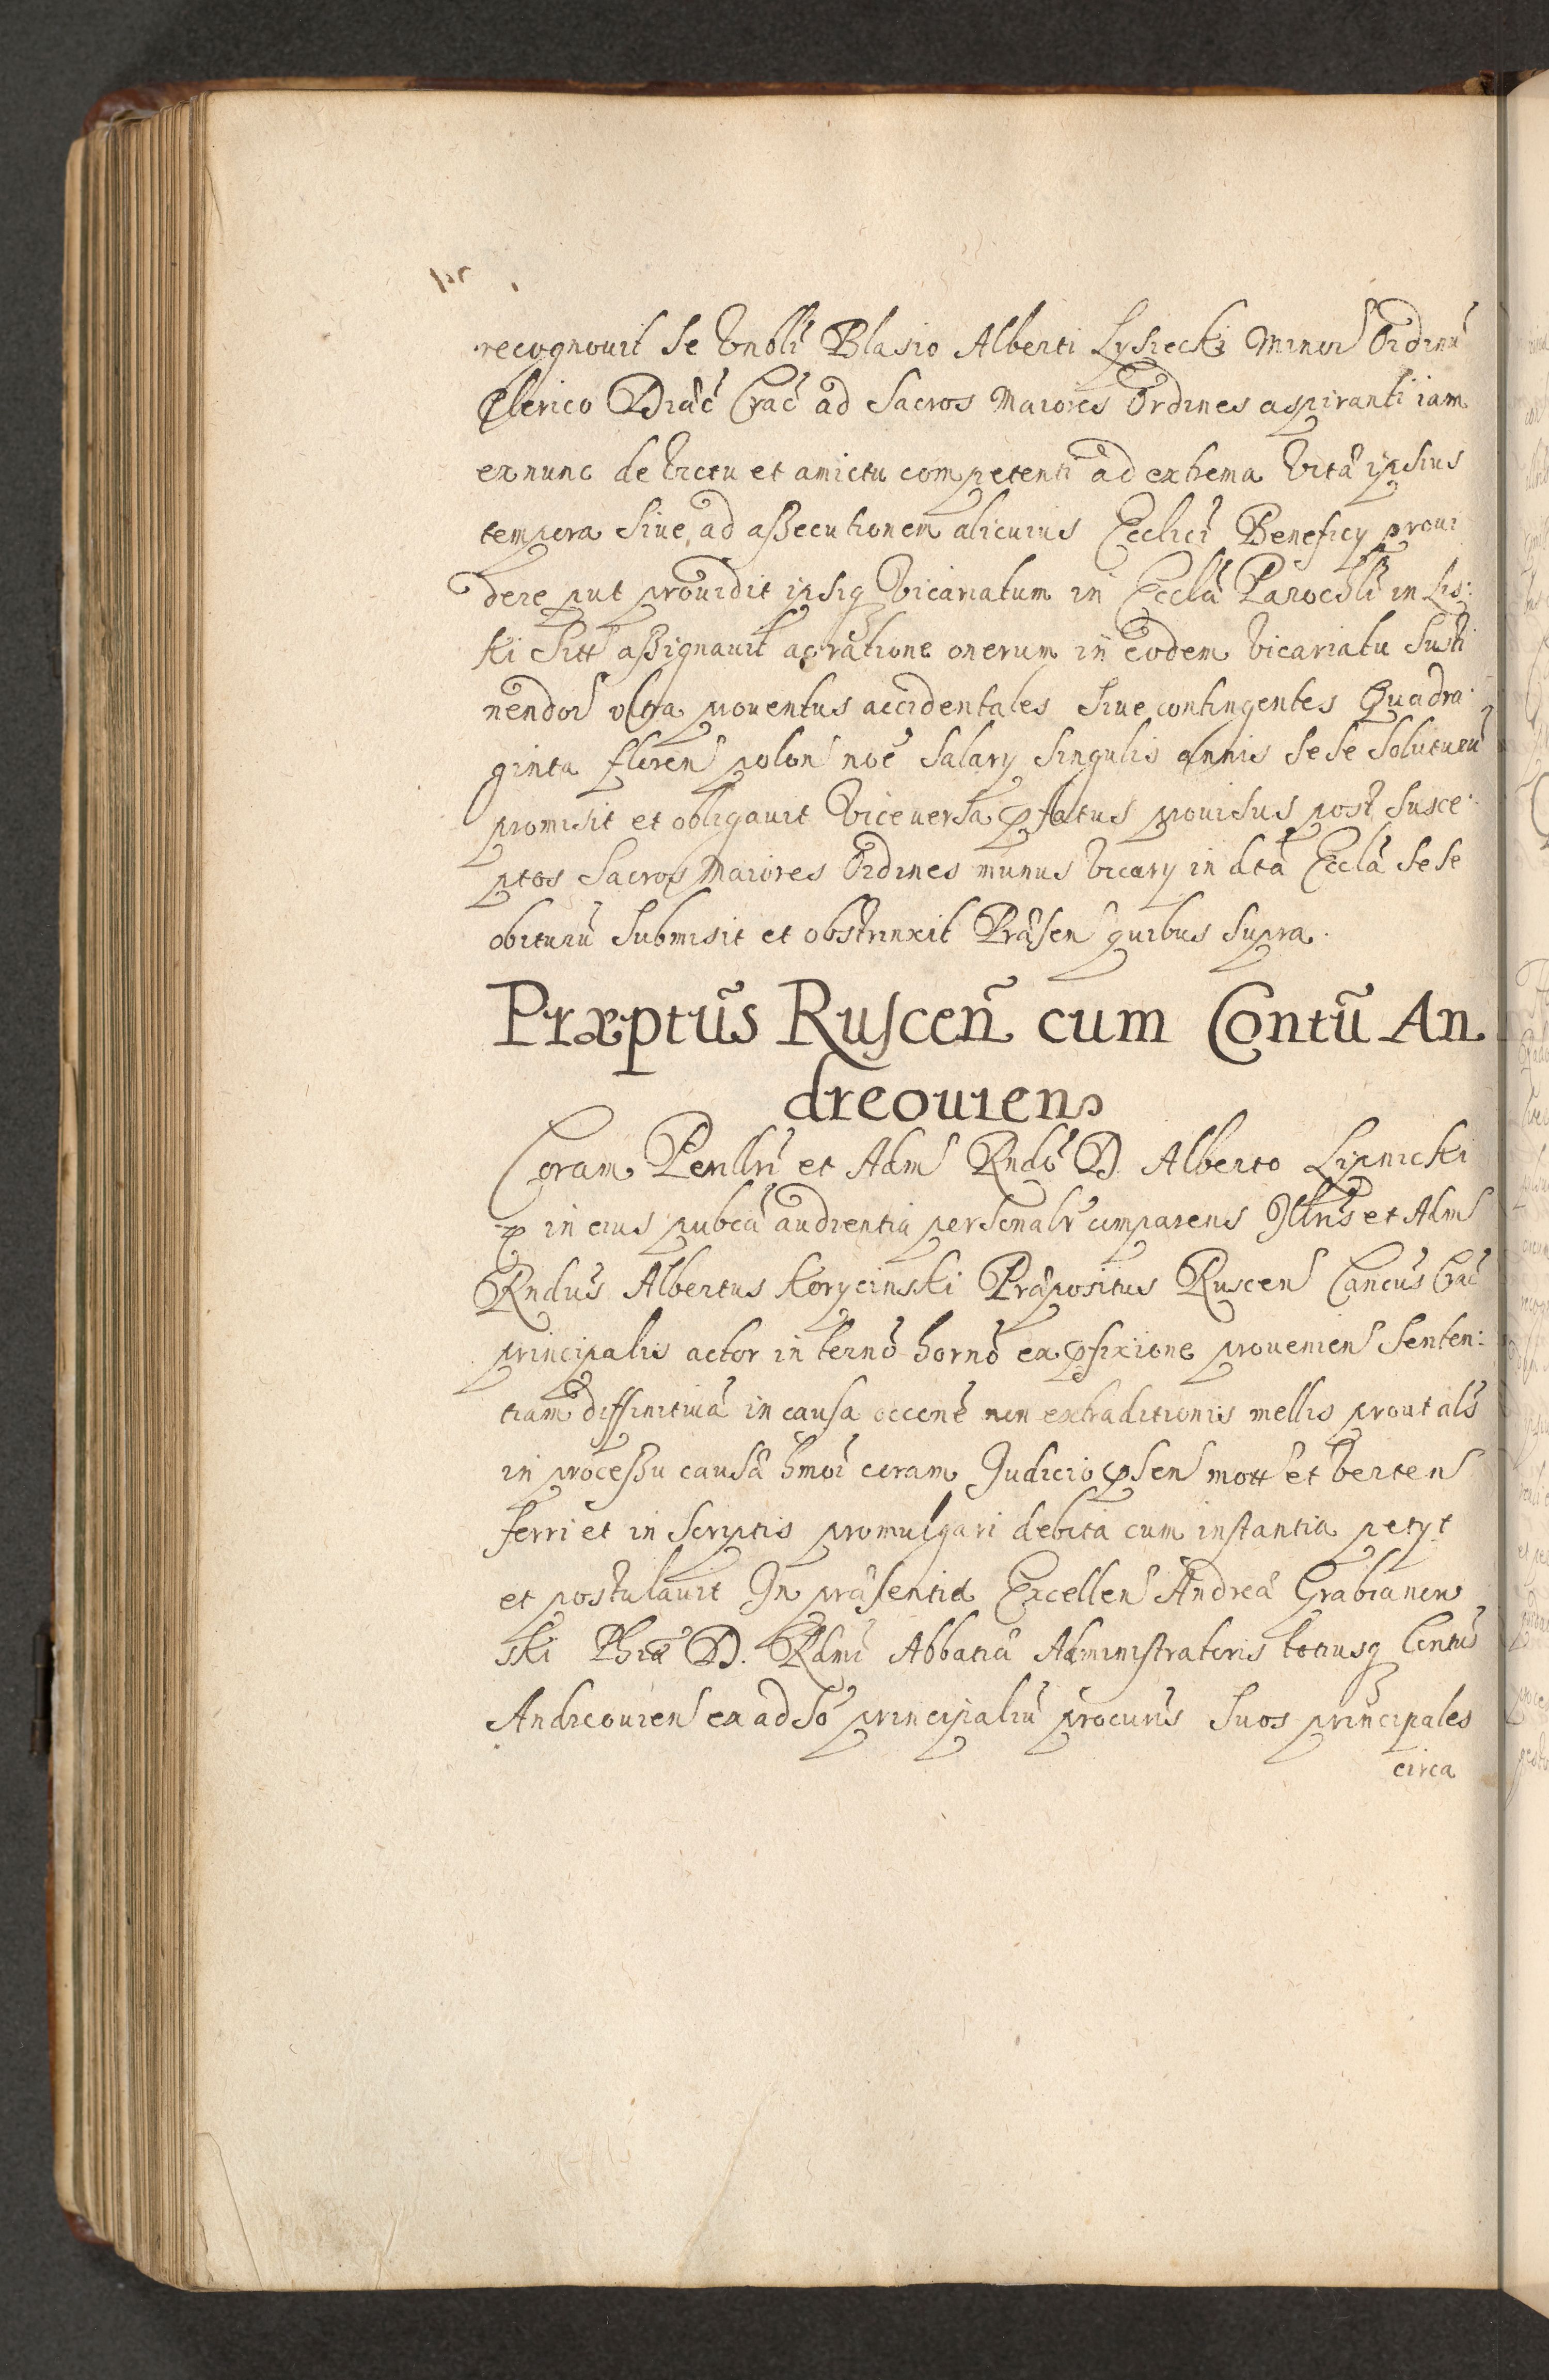 recognouit se Vnbli Blasio Alberti Lysiecki Minor Ordinũ
Clerico Diæc Crac ad Sacros Maiores Ordines aspiranti iam
exnunc de Victu et amictu competenti ad extrema Vitæ ipsius
tempora siue ad assecutionem alicuius Ecclici Beneficy proui
dere put prouidit ipsiq Vicariatum in Eccla Parochli in Lis:
ki sitt assignauit ac ratione onerum in eodem Vicariatu susti
nendor vltra prouentus accidentales siue contingentes Quadra
ginta floren polon noe Salary singulis annis sese soluturũ
promisit et obligauit Viceuersa pfatus prouisus post susce:
ptos Sacros Maiores Ordines munus Vicary in dta Eccla sese
obiturũ submisit et obstrinxit Præsen quibus supra.
Præptũs Ruscen̄ cum Contũ An
dreouiens
Coram Perillri et Adm Rndo D. Alberto Lipnicki
p in eius pubca audientia personalr comparens Illris et Adm
Rndus Albertus Korycinski Præpositus Ruscen Cancus Crac
principalis actor in termo horno ex pfixione prouenien Senten:
tiam diffinitiuã in causa occone non extraditionis mellis prout als
in processu causæ hmoi coram Judicio psen mott et verten
ferri et in scriptis promulgari debita cum instantia petyt
et postulauit In præsentia Excellen Andreæ Grabianow
ski Phiæ D. Rdmi Abbatiæ Administratoris totiusq Contus
Andreouien ex adso principaliũ procuris suos principales
circa